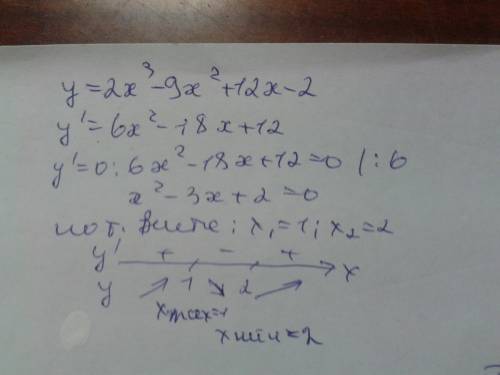 y = 2x³ - 9x² + 12x - 2
y' = 6x² - 18x + 12
y' = 0 : 6x² - 18x + 12 = 0 | : 6
x² - 3x + 2 = 0
по т. Виете : x₁ = 1 ; x₂ = 2
y' + - + x
y ↗ 1 ↘ 2 ↗
xmax=1
xмин=2